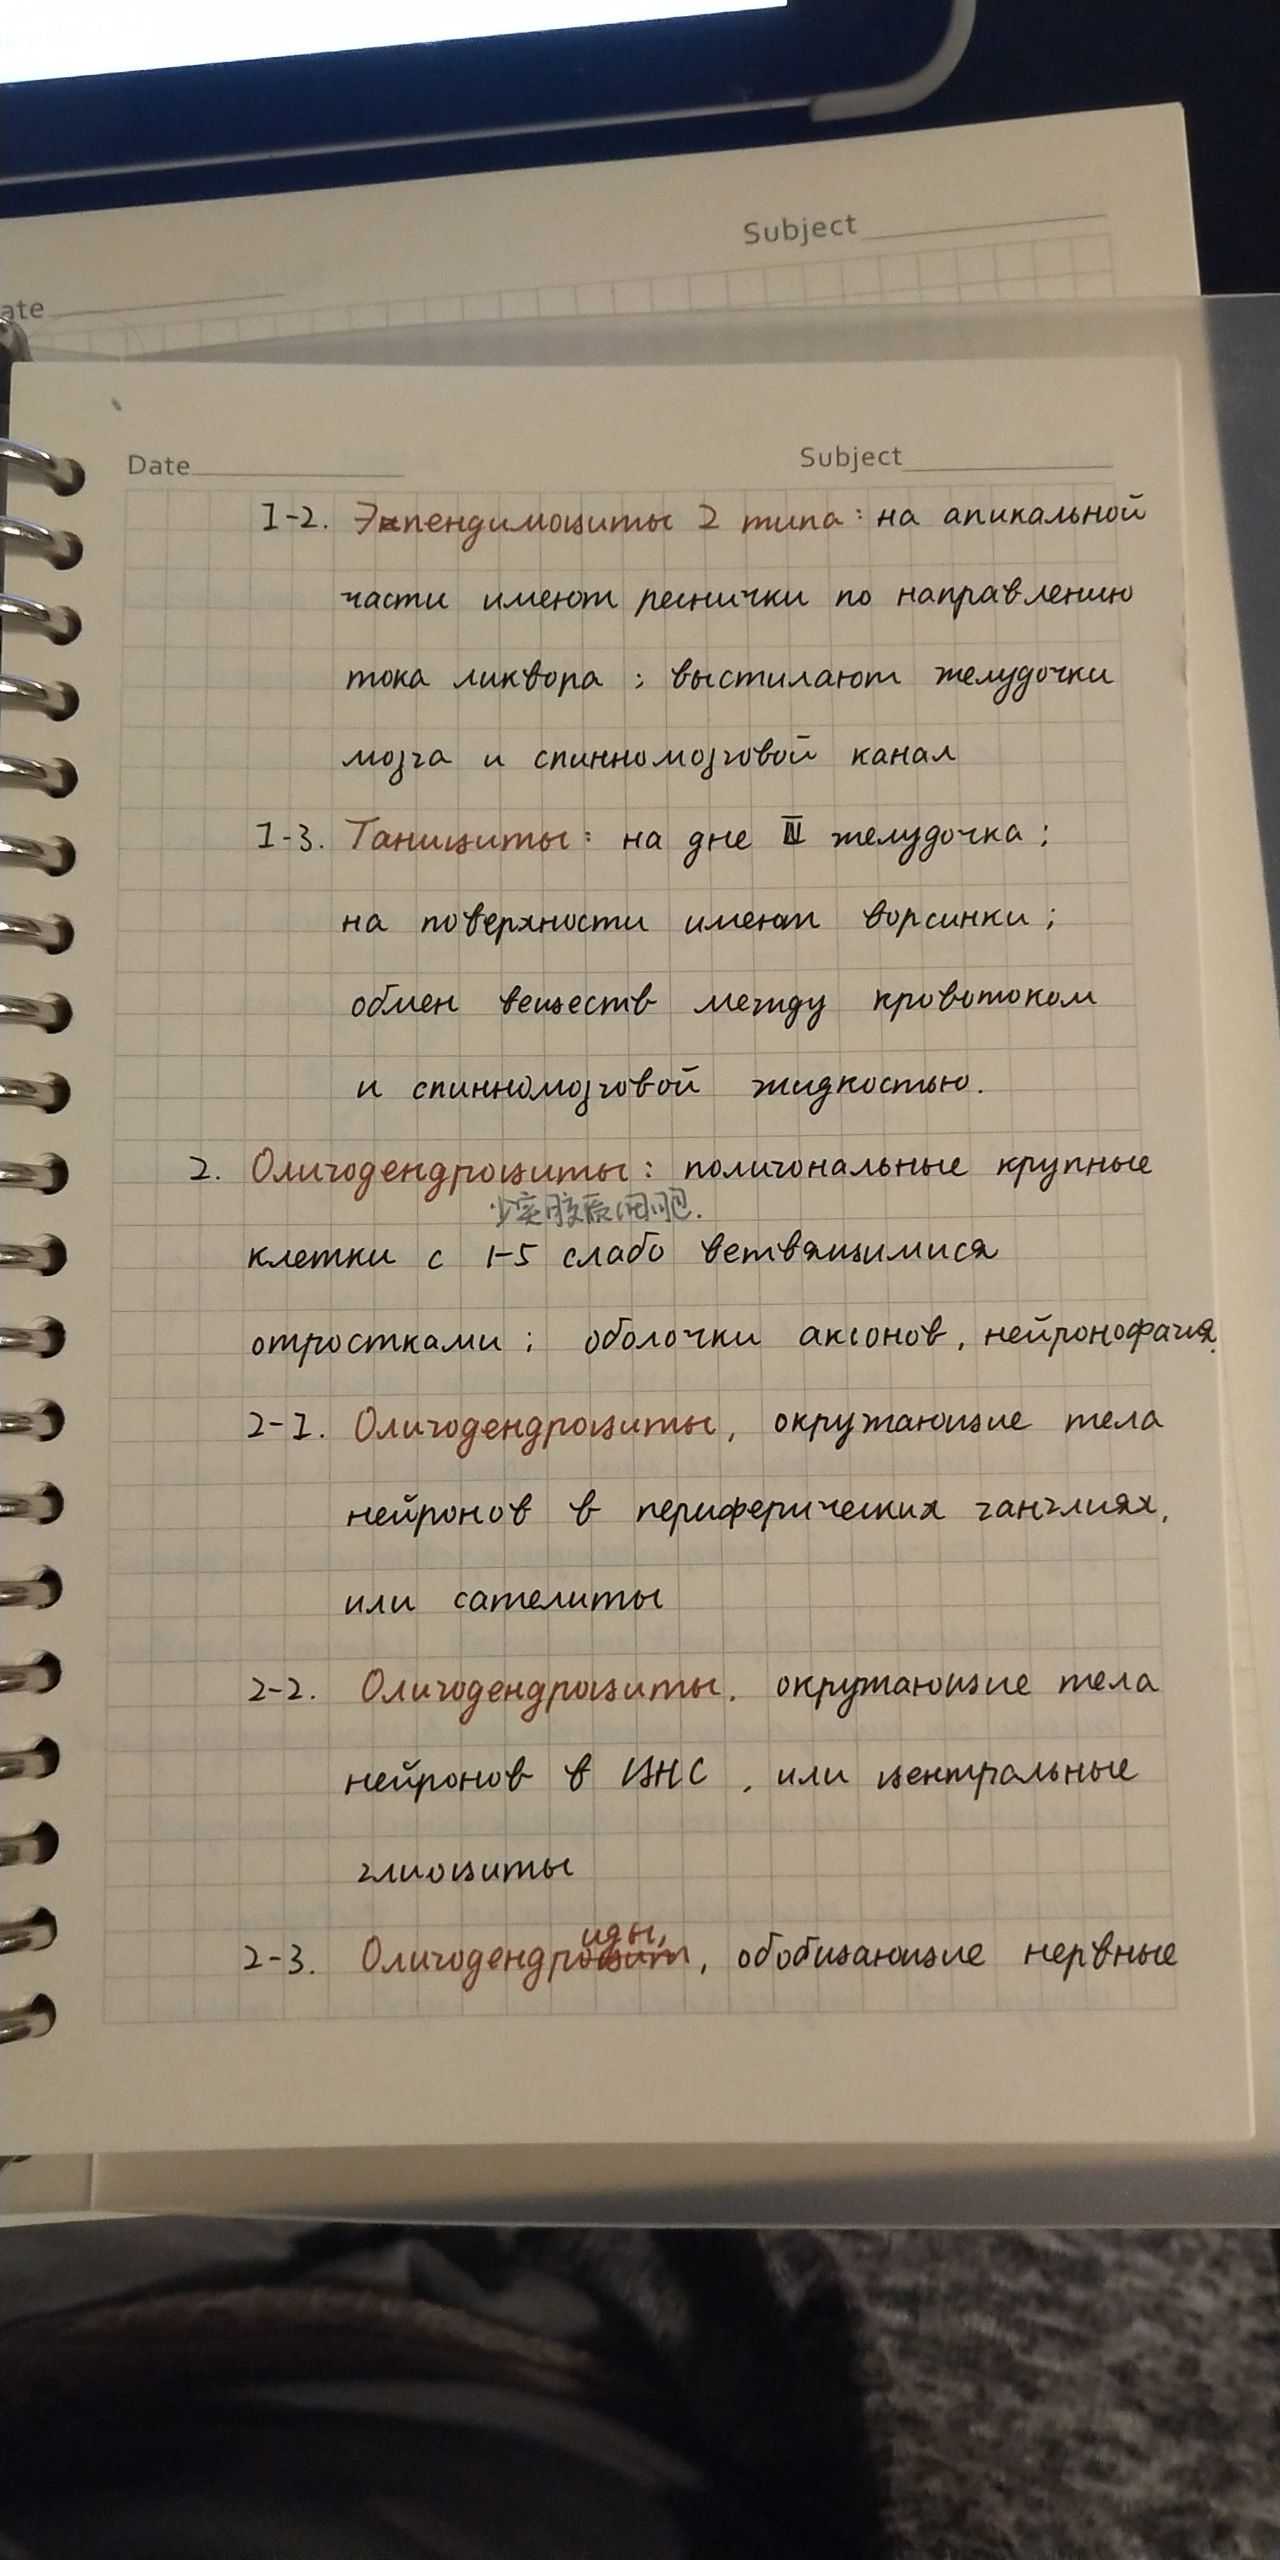 Subject
ate
Date
Subject
1-2. Эпендимоциты 2 типа: на апикальной
части имеют реснички по направлению
тока ликвора; выстилают желудочки
мозга и спинномозговой канал
1-3. Танициты: на дне III желудочка;
на поверхности имеют ворсинки;
обмен веществ между кровотоком
и спинномозговой жидкостью.
2. Олигодендроциты: полигональные крупные
少突胶质细胞.
клетки с 1-5 слабо ветвящимися
отростками; оболочки аксонов, нейронофагия.
2-1. Олигодендроциты, окружающие тела
нейронов в периферических ганглиях,
или сателиты
2-2. Олигодендроциты, окружающие тела
нейронов в ЦНС, или центральные
глиоциты
2-3. Олигодендроциды, обобщающие нервные